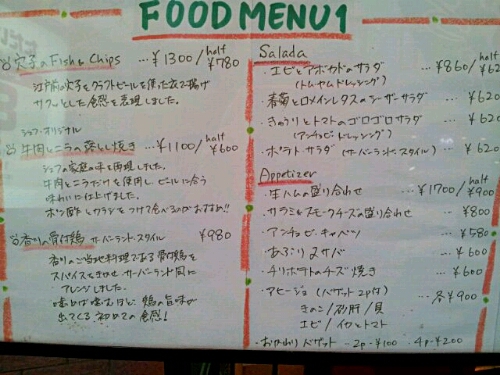 FOOD MENU 1
穴子のFish & Chips ... ¥1300/half ¥780
江戸前穴子をクラフトビールを使った衣で揚げ
サクっとした食感を表現しました。
シェフ・オリジナル
牛肉とニラの落とし焼き ... ¥1100/half ¥600
シェフの家庭の味を再現しました。
牛肉とニラだけを使用し、ビールに合う
味わいに仕上げました。
ポン酢とカラシをつけて食べるのがおすすめ!!
香川の骨付鶏 サーバーランド・スタイル ¥980
香川のご当地料理である骨付鶏を
スパイスをきかせ サーバーランド風に
アレンジしました。
噛めば噛むほど、鶏の旨味が
出てくる初めての食感!
Salada
・エビとアボカドのサラダ ... ¥860/half ¥62
(トムヤムドレッシング)
・春菊とロメインレタスのシーザーサラダ ... ¥620
・きゅうりとトマトのゴロゴロサラダ ... ¥620
(アンチョビドレッシング)
・ポテトサラダ (サーバーランド・スタイル) ... ¥620
Appetizer
・生ハムの盛り合わせ ... ¥1700/half ¥900
・サラミとスモークチーズの盛り合わせ ... ¥800
・アンチョビ・キャベツ ... ¥580
・あぶり〆サバ ... ¥600
・チリポテトのチーズ焼き ... ¥600
・アヒージョ (バゲット2p付) ... 各¥900
きのこ/砂肝/貝
エビ/イカとトマト
・おかわりバゲット - 2p-¥100 4p-¥200